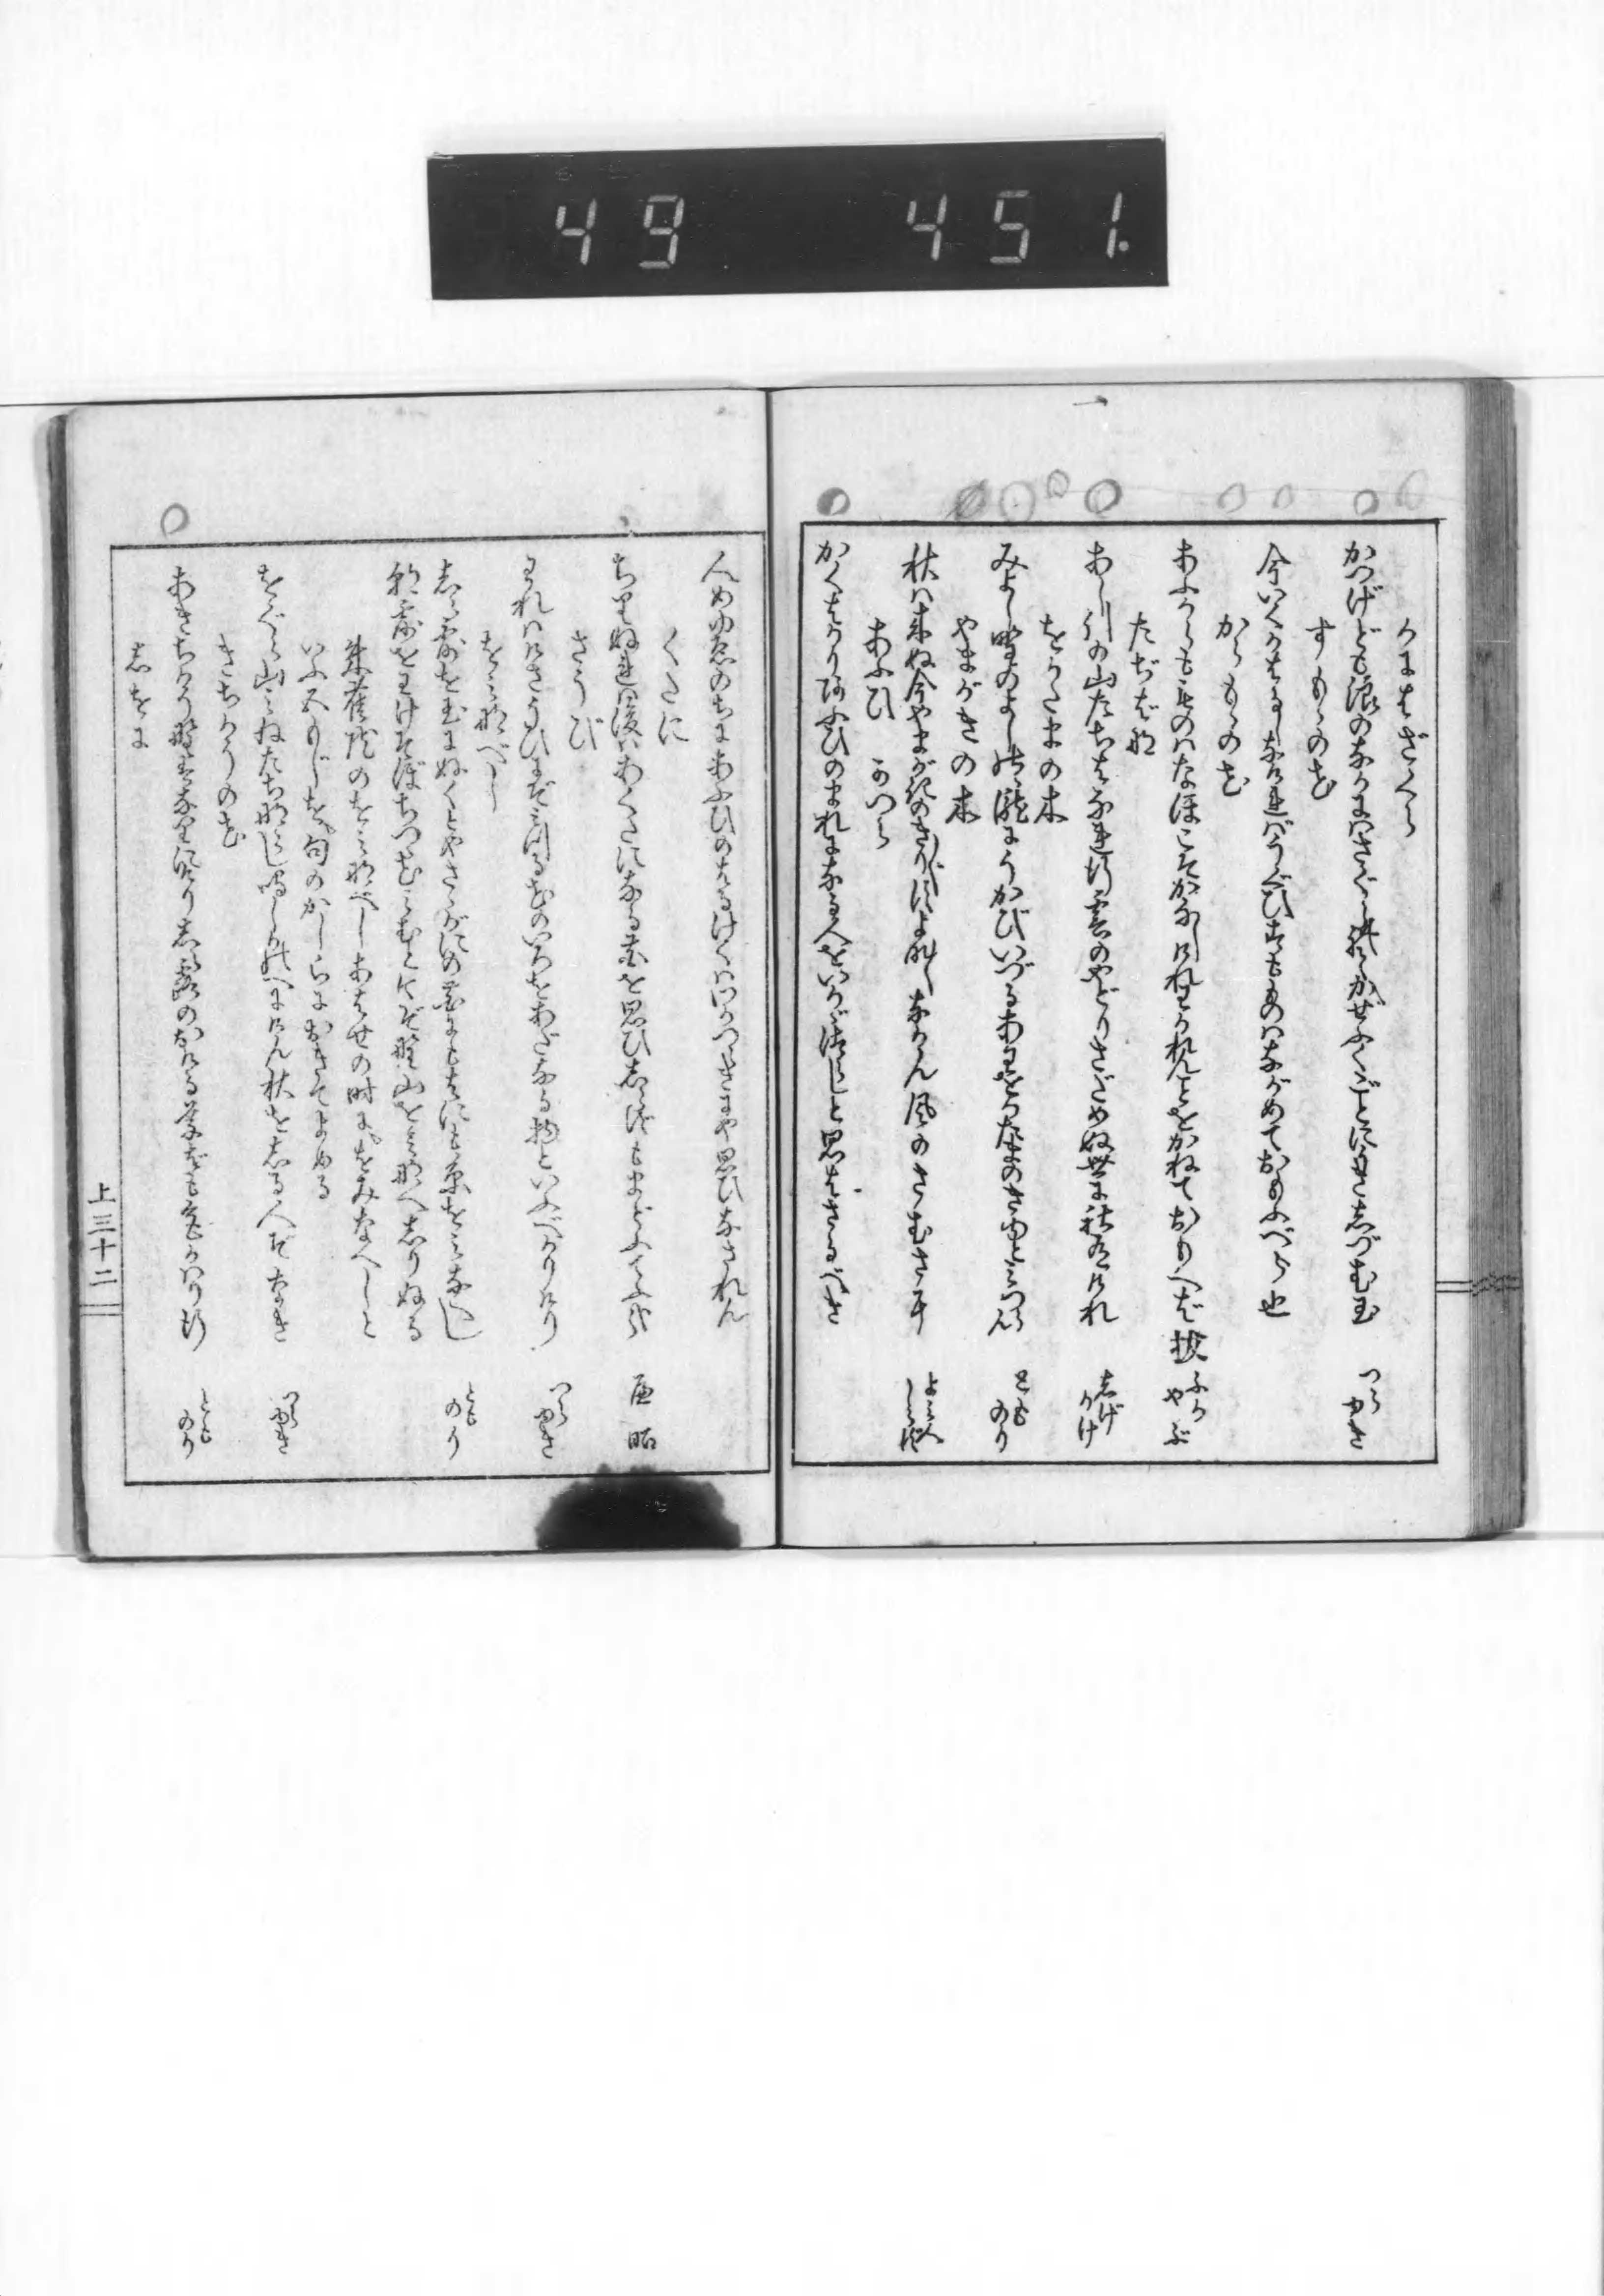 49 451.
かにはざくら
かづけども浪のなかにはさぐられで風ふくごとにうきしづむ玉 つらゆき
すもゝの花
今いくか春しなければうぐひすも物はながめておもふべら也
からもゝの花
あふからも物はなほこそかなしけれわかれんことをかねておもへば 披 ふかやぶ
たちばな
あし引の山たちはなれ行雲のやどりさだめぬ世に社有けれ しげかけ
をがたまの木
みよし野のよしのゝ瀧にうかびいづるあわをか玉のきゆとみつらん とものり
やまがきの木
秋は来ぬ今やまがきのきり〴〵すよな〳〵なかん風のさむさに よみ人しらず
あふひ かつら
かくばかりあふひのまれになる人をいかゞつらしと思はざるべき
人めゆゑのちにあふひのはるけくはわがつらきにや思ひなされん
くたに
ちりぬれば後はあくたになる花を思ひしらずもまどふてふ哉 遍昭
さうび
われはけさうひにぞみつる花のいろをあだなる物といふべかりけり つらゆき
をみなべし
しら露を玉にぬくとやさゝがにの花にも葉にも糸をみなへし とものり
朝露をわけそぼちつゝ花みむと今ぞ野山をみなへしりぬる
朱雀院のをみなべしあはせの時にをみなへしと
いふ五もじを句のかしらにおきてよめる
をぐら山みねたちならし鳴しかのへにけん秋をしる人ぞなき つらゆき
きちかうの花
あきちかう野はなりにけりしら露のおける草ばも色かはり行 とものり
しをに
上三十二